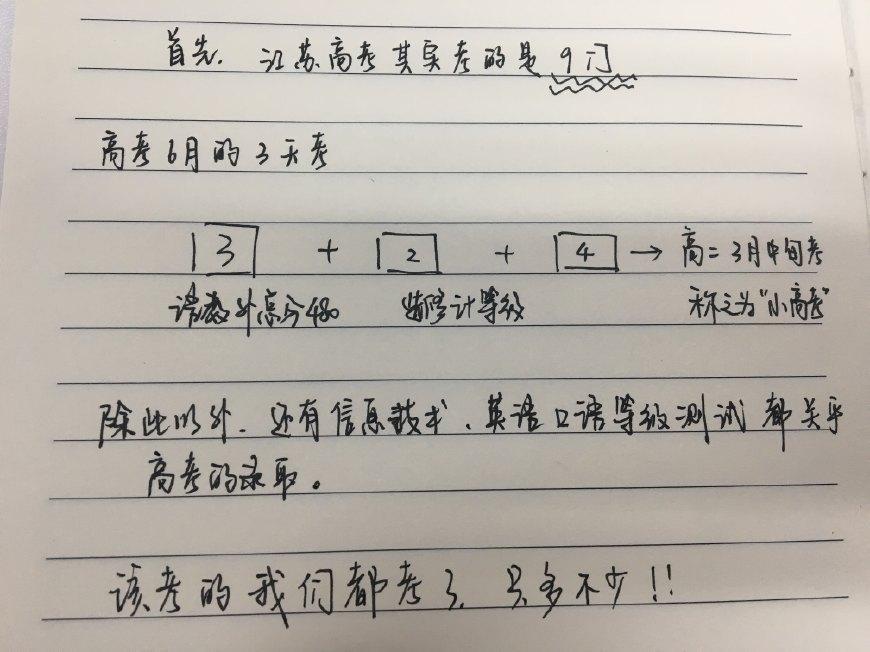 首先. 江苏高考其实考的是9门
高考6月的3天考
3 + 2 + 4 → 高二3月中旬考
语数外总分480 选修计等级 称之为"小高考"
除此以外. 还有信息技术、英语口语等级测试都关乎
高考的录取。
该考的我们都考了. 只多不少!!